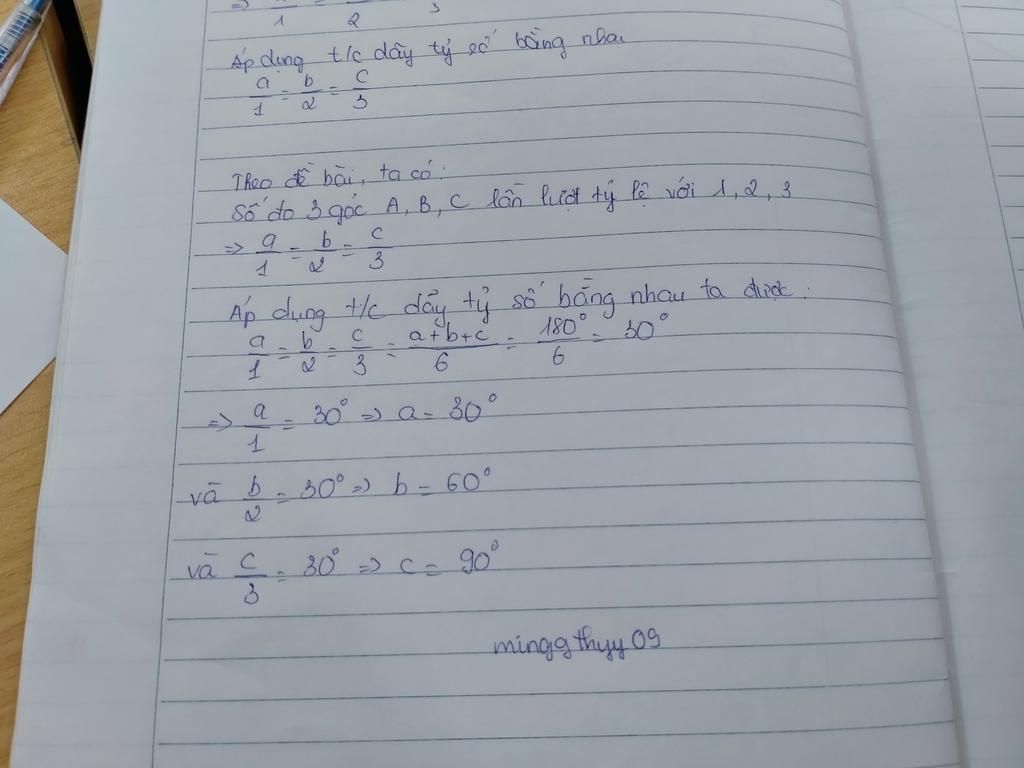 ⇒ a/1 = b/2 = c/3
Áp dụng t/c dãy tỷ số bằng nhau
a/1 = b/2 = c/3
Theo đề bài, ta có:
Số đo 3 góc A, B, C lần lượt tỷ lệ với 1, 2, 3
⇒ a/1 = b/2 = c/3
Áp dụng t/c dãy tỷ số bằng nhau ta được:
a/1 = b/2 = c/3 = a+b+c/6 = 180°/6 = 30°
⇒ a/1 = 30° ⇒ a = 30°
và b/2 = 30° ⇒ b = 60°
và c/3 = 30° ⇒ c = 90°
mingg thyy 09